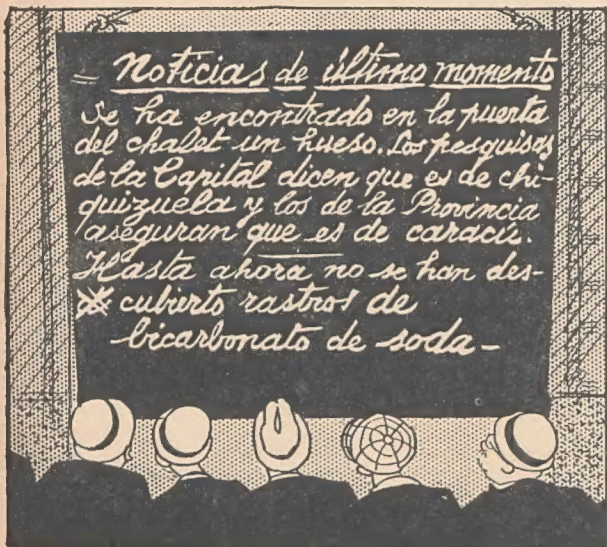 = Noticias de último momento
Se ha encontrado en la puerta
del chalet un hueso. Los pesquisas
de la Capital dicen que es de chi-
quizuela y los de la Provincia
aseguran que es de caracú.
Hasta ahora no se han des-
cubierto rastros de
bicarbonato de soda -